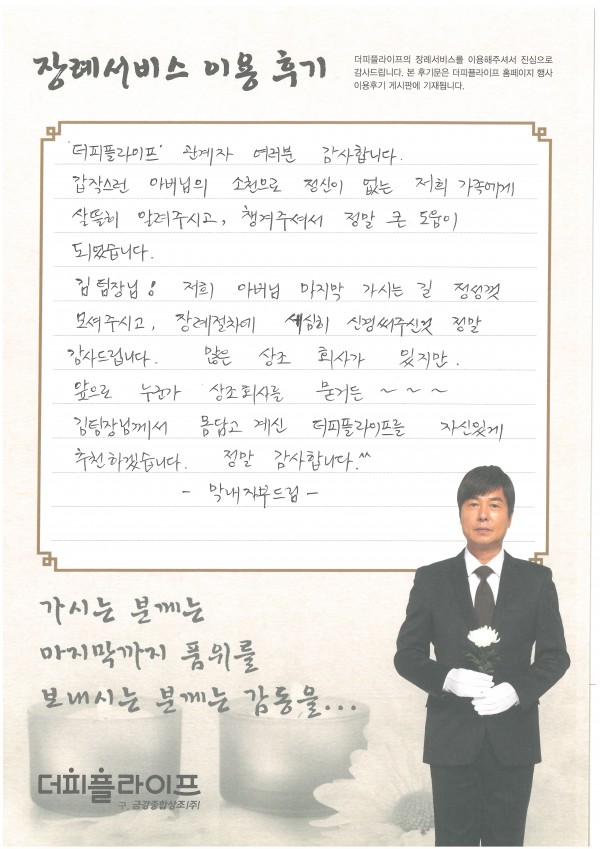 장례서비스 이용 후기
더피플라이프의 장례서비스를 이용해주셔서 진심으로
감사드립니다. 본 후기문은 더피플라이프 홈페이지 행사
이용후기 게시판에 기재됩니다.
'더피플라이프' 관계자 여러분 감사합니다.
갑작스런 아버님의 소천으로 정신이 없는 저희 가족에게
살뜰히 알려주시고, 챙겨주셔서 정말 큰 도움이
되었습니다.
김팀장님! 저희 아버님 마지막 가시는 길 정성껏
모셔주시고, 장례절차에 세심히 신경써주신것 정말
감사드립니다. 많은 상조 회사가 있지만.
앞으로 누군가 상조회사를 묻거든 ~ ~ ~
김팀장님께서 몸담고 계신 더피플라이프를 자신있게
추천하겠습니다. 정말 감사합니다.^^
- 막내자부드림 -
가시는 분께는
마지막까지 품위를
보내시는 분께는 감동을...
더피플라이프
구. 금강종합상조(주)